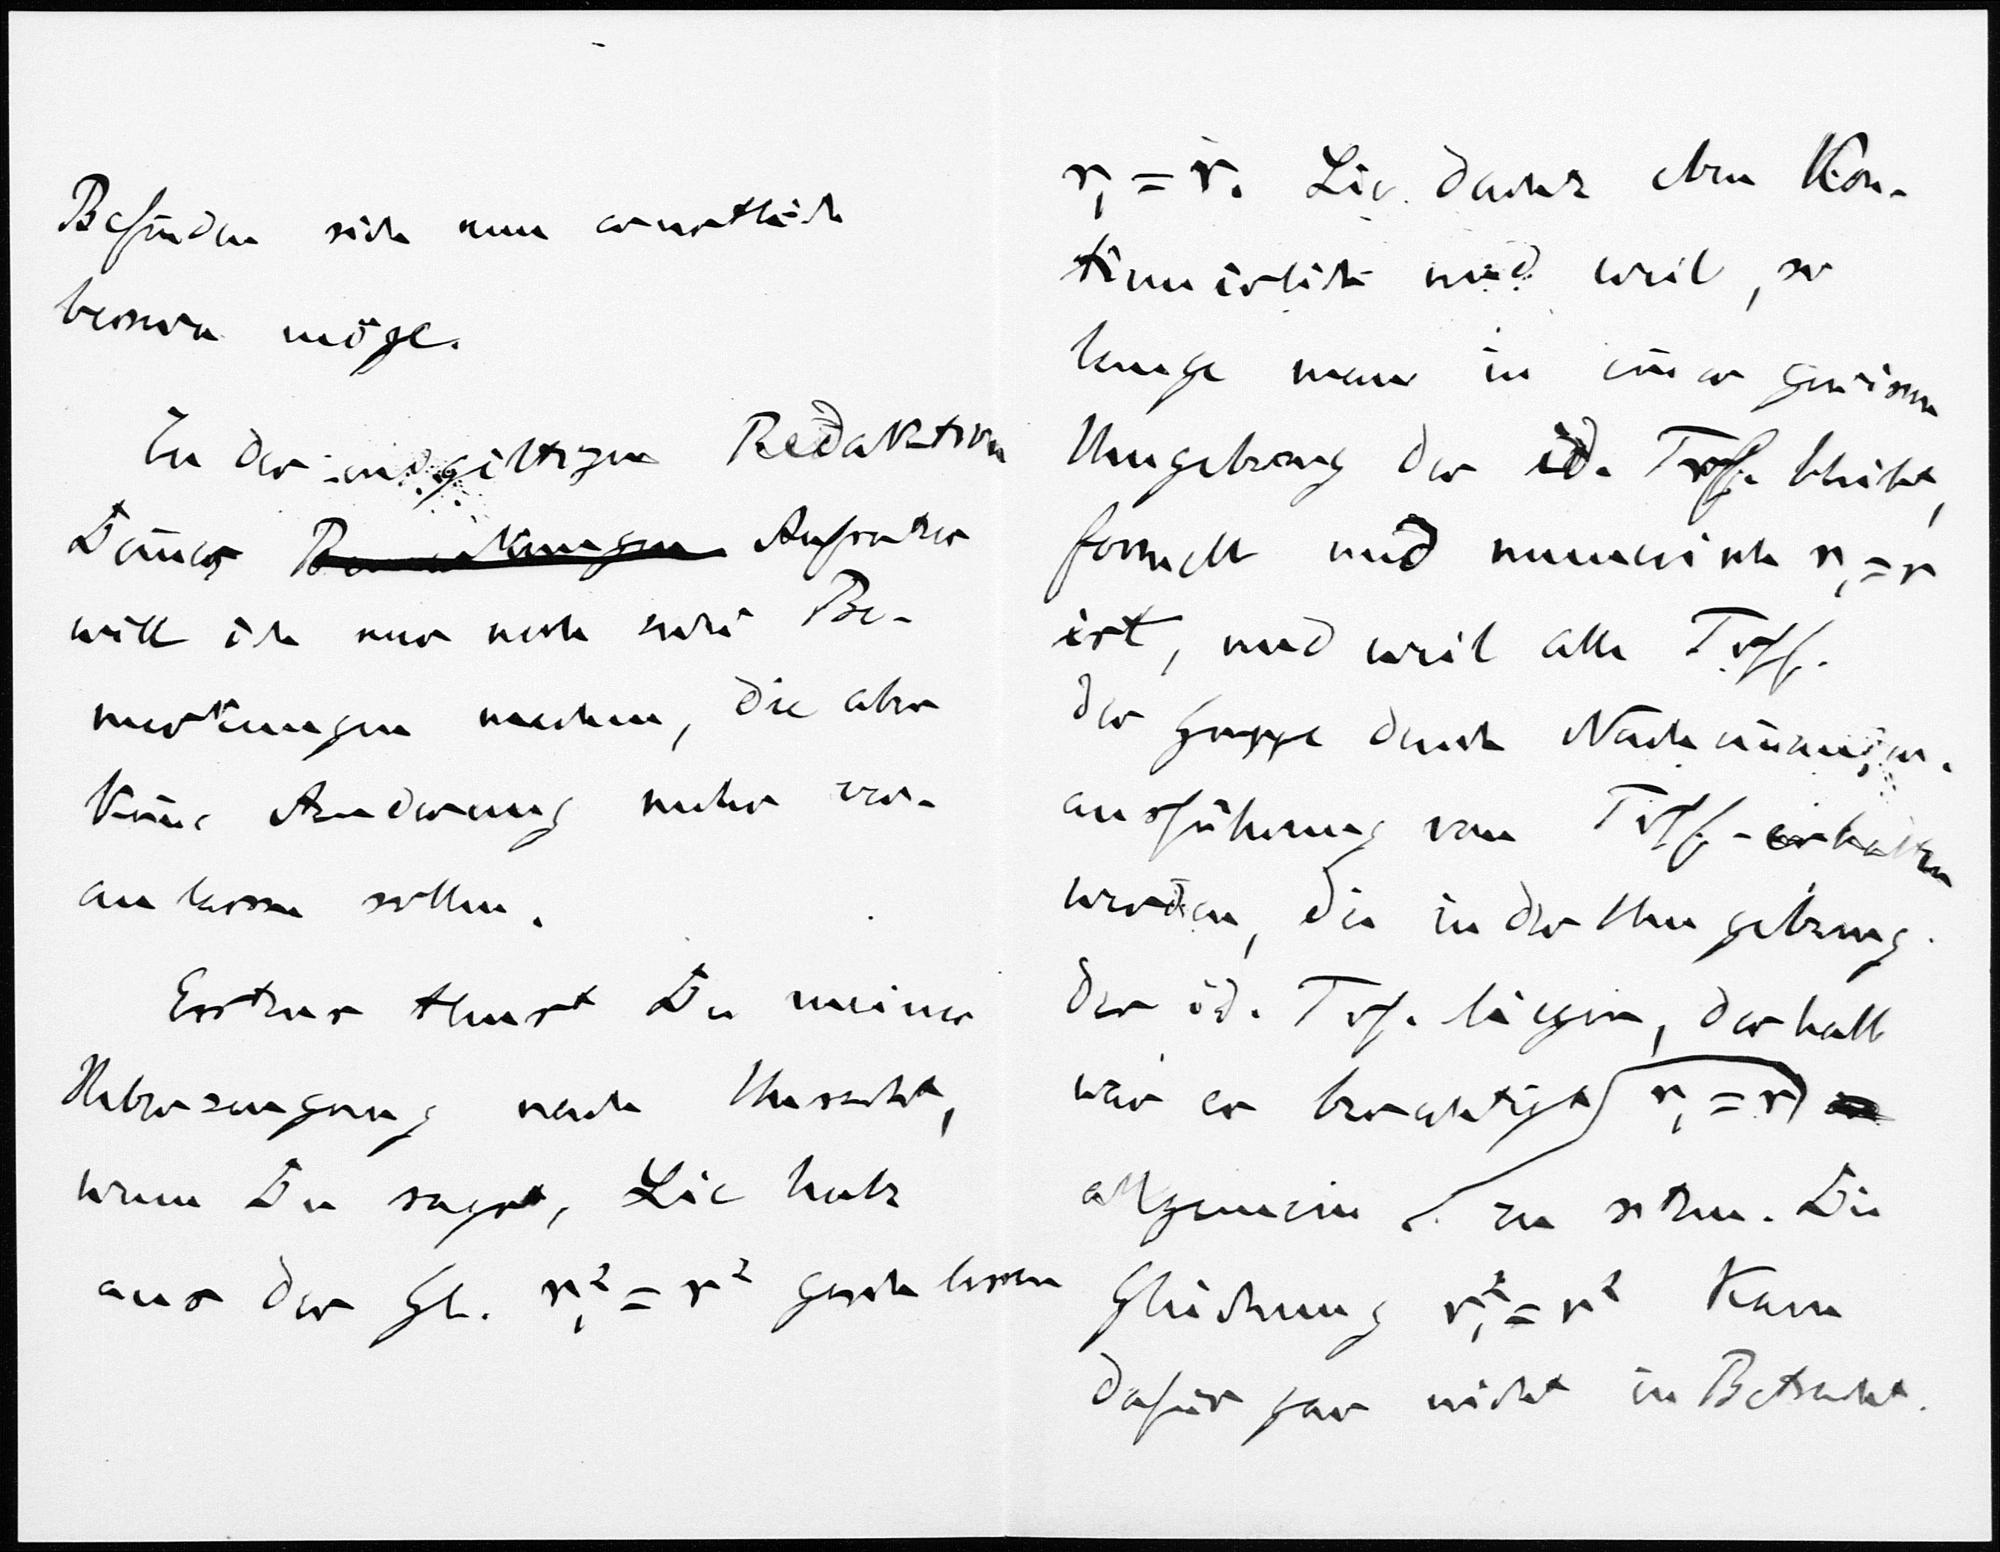 Befinden sich nun ernstlich
bessern möge.
Zu der endgiltigen Redaktion
Deines Bemerkungen Aufsatzes
will ich nur noch zwei Be-
merkungen machen, die aber
keine Aenderung mehr ver-
anlassen sollen.
Erstens thust Du meiner
Ueberzeugung nach Unrecht,
wenn Du sagst, Lie habe
aus der Gl. r₁² = r² geschlossen
r₁ = r. Lie dachte eben Kon-
tinuierlich und weil, so
lange man in einer gewissen
Umgebung der id. Trf. bleibt,
formell und numerisch r₁ = r
ist, und weil alle Trff.
der Gruppe durch Nacheinander-
ausführung von Trff. erhalten
werden, die in der Umgebung
der id. Trf. liegen, deshalb
war er berechtigt r₁ = r
allgemein zu setzen. Die
Gleichung r₁² = r² kam
dafür gar nicht in Betracht.